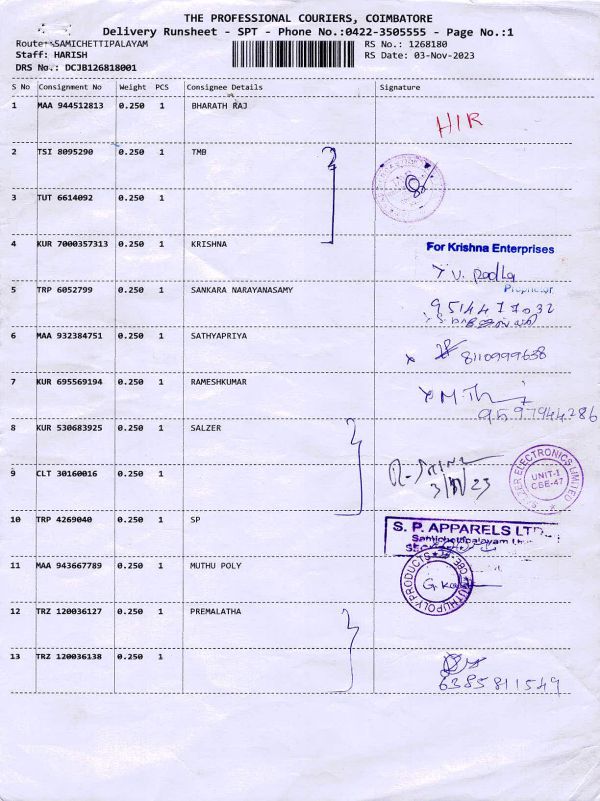 THE PROFESSIONAL COURIERS, COIMBATORE
Delivery Runsheet - SPT - Phone No.:0422-3505555 - Page No.:1
Route: SAMICHETTIPALAYAM
RS No.: 1268180
Staff: HARISH
RS Date: 03-Nov-2023
DRS No.: DCJB126818001
S No Consignment No Weight PCS Consignee Details Signature
1 MAA 944512813 0.250 1 BHARATH RAJ
HIR
2 TSI 8095290 0.250 1 TMB
3 TUT 6614092 0.250 1
4 KUR 7000357313 0.250 1 KRISHNA
For Krishna Enterprises
Proprietor
5 TRP 6052799 0.250 1 SANKARA NARAYANASAMY
9514477032
6 MAA 932384751 0.250 1 SATHYAPRIYA
8110999638
7 KUR 695569194 0.250 1 RAMESHKUMAR
9597944286
8 KUR 530683925 0.250 1 SALZER
SALZER ELECTRONICS LIMITED
UNIT-1
CBE-47
9 CLT 30160016 0.250 1
10 TRP 4269040 0.250 1 SP
S. P. APPARELS LTD
Samichettipalayam
11 MAA 943667789 0.250 1 MUTHU POLY
MUTHUPOLY PRODUCTS
12 TRZ 120036127 0.250 1 PREMALATHA
13 TRZ 120036138 0.250 1
6385811549